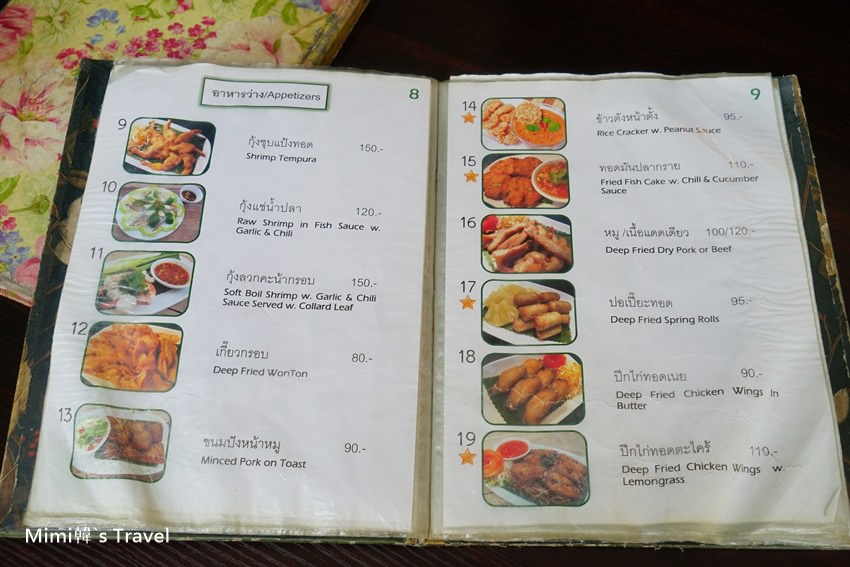 อาหารว่าง/Appetizers
8
9
กุ้งชุบแป้งทอด 150.-
Shrimp Tempura
10
กุ้งแช่น้ำปลา 120.-
Raw Shrimp in Fish Sauce w.
Garlic & Chili
11
กุ้งลวกคะน้ากรอบ 150.-
Soft Boil Shrimp w. Garlic & Chili
Sauce Served w. Collard Leaf
12
เกี๊ยวกรอบ 80.-
Deep Fried WonTon
13
ขนมปังหน้าหมู 90.-
Minced Pork on Toast
9
14
ข้าวตังหน้าตั้ง 95.-
Rice Cracker w. Peanut Sauce
15
ทอดมันปลากราย 110.-
Fried Fish Cake w. Chill & Cucumber
Sauce
16
หมู /เนื้อแดดเดียว 100/120.-
Deep Fried Dry Pork or Beef
17
ปอเปี๊ยะทอด 95.-
Deep Fried Spring Rolls
18
ปีกไก่ทอดเนย 90.-
Deep Fried Chicken Wings In
Butter
19
ปีกไก่ทอดตะไคร้ 110.-
Deep Fried Chicken Wings w.
Lemongrass
Mimi韓`s Travel